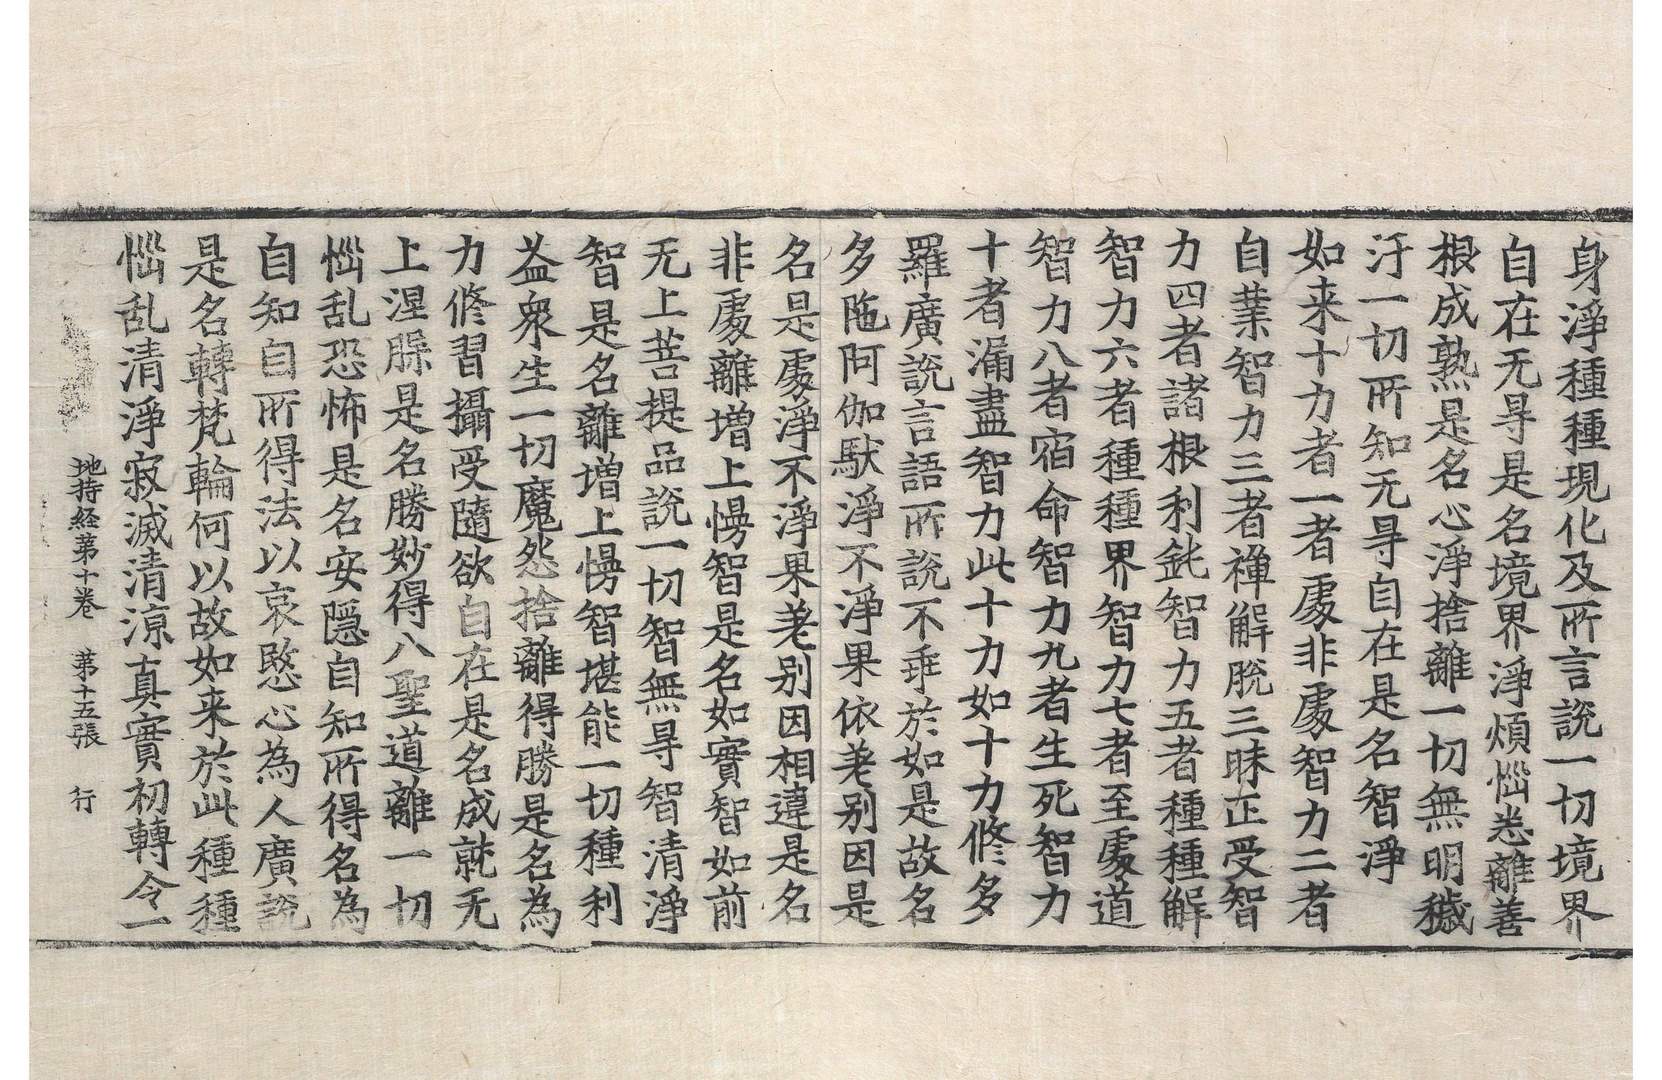 身淨種種現化及所言說一切境界
自在无㝵是名境界淨煩惱悉離善
根成熟是名心淨捨離一切無明穢
汙一切所知无㝵自在是名智淨
如来十力者一者處非處智力二者
自業智力三者禪解脫三昧正受智
力四者諸根利鈍智力五者種種解
智力六者種種界智力七者至處道
智力八者宿命智力九者生死智力
十者漏盡智力此十力如十力修多
羅廣說言語所說不乖於如是故名
多陁阿伽馱淨不淨果依差别因是
名是處淨不淨果差别因相違是名
非處離增上慢智是名如實智如前
无上菩提品說一切智無㝵智清淨
智是名離增上慢智堪能一切種利
益衆生一切魔怨捨離得勝是名為
力修習攝受隨欲自在是名成就无
上涅槃是名勝妙得八聖道離一切
惱乱恐怖是名安隱自知所得名為
自知自所得法以哀愍心為人廣說
是名轉梵輪何以故如来於此種種
惱乱清淨寂滅清涼真實初轉令一
地持経苐十卷 苐十五張 行